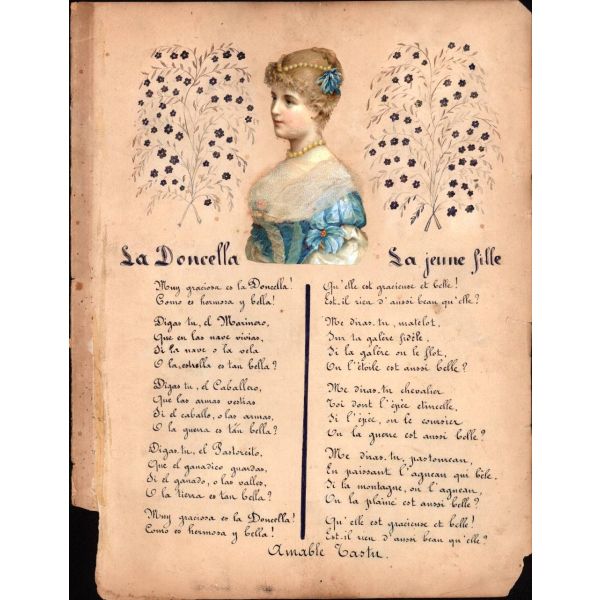 La Doncella
Muy graciosa es la Doncella!
Como es hermosa y bella!
Digas tu, el Marinero,
Que en las nave vivias,
Si la nave o la vela
O la estrella es tan bella?
Digas tu, el Caballero,
Que las armas vestias
Si el caballo, o las armas,
O la guerra es tan bella?
Digas tu, el Pastorcito,
Que el ganadico guardas,
Si el ganado, o las valles,
O la tierra es tan bella?
Muy graciosa es la Doncella!
Como es hermosa y bella!
La jeune fille
Qu'elle est gracieuse et belle!
Est-il rien d'aussi beau qu'elle?
Me diras-tu, matelot,
Sur ta galère fidèle,
Si la galère ou le flot,
Ou l'étoile est aussi belle?
Me diras-tu chevalier
Toi dont l'épée étincelle,
Si l'épée, ou le coursier
Ou la guerre est aussi belle?
Me diras-tu, pastoureau,
En paissant l'agneau qui bèle,
Si la montagne, ou l'agneau,
Ou la plaine est aussi belle?
Qu'elle est gracieuse et belle!
Est-il rien d'aussi beau qu'elle?
Amable Tastu.